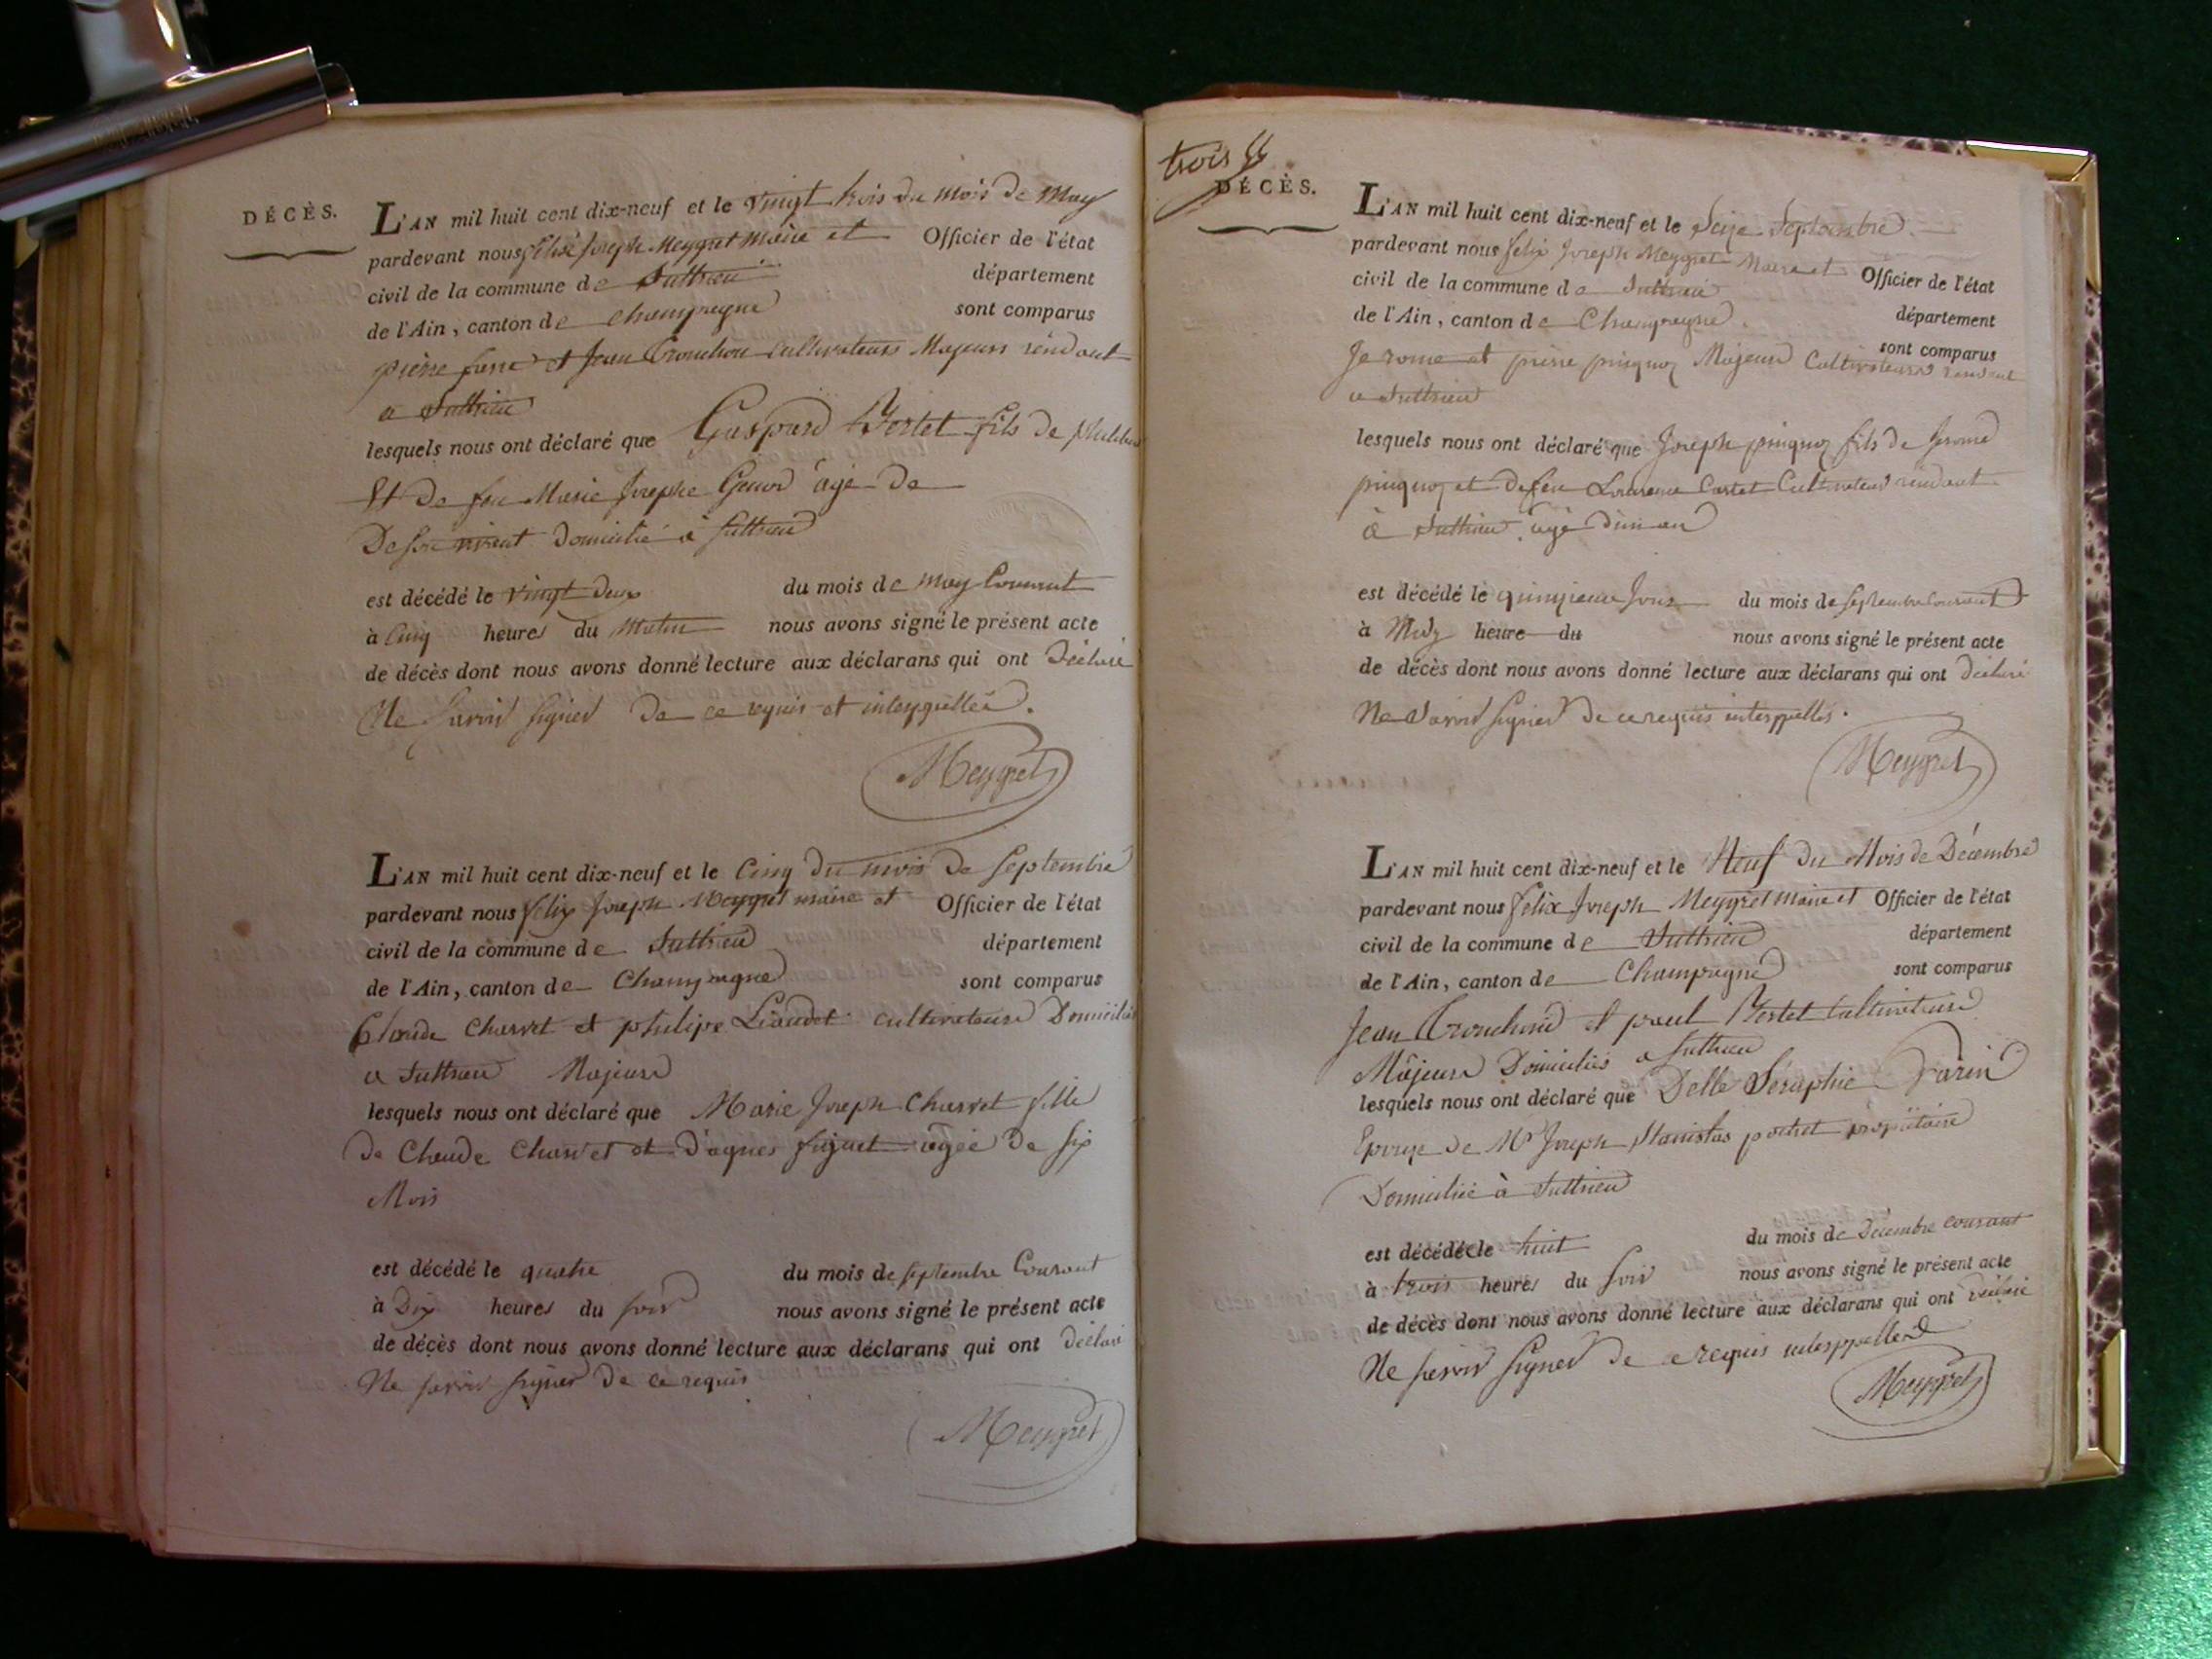 DÉCÈS.
L'AN mil huit cent dix-neuf et le vingt trois du mois de may
pardevant nous félix joseph Meygret Maire et Officier de l'état
civil de la commune de Suttrieu département
de l'Ain, canton de Champagne sont comparus
pierre et Jean Trouchon Cultivateurs Majeurs résidant
a Suttrieu
lesquels nous ont déclaré que Gaspard Bertet fils de
Et de feu Marie Josephe agé de
domicilié à Suttrieu
est décédé le vingt deux du mois de may Courant
à Cinq heures du Matin nous avons signé le présent acte
de décès dont nous avons donné lecture aux déclarans qui ont déclaré
Ne Savoir Signer de ce requis et interppellés.
Meygret
L'AN mil huit cent dix-neuf et le Cinq du mois de Septembre
pardevant nous félix joseph Meygret maire et Officier de l'état
civil de la commune de Suttrieu département
de l'Ain, canton de Champagne sont comparus
Claude Charvet et philipe Liaudet cultivateurs Domiciliés
a Suttrieu Majeurs
lesquels nous ont déclaré que Marie Joseph Charvet fille
de Claude Charvet et d'agnes figuet agée de Six
Mois
est décédé le quatre du mois de Septembre Courant
à Dix heures du Soir nous avons signé le présent acte
de décès dont nous avons donné lecture aux déclarans qui ont déclaré
Ne savoir signer de ce requis
Meygret
trois
DÉCÈS.
L'AN mil huit cent dix-neuf et le Seize Septembre
pardevant nous félix Joseph Meygret Maire et Officier de l'état
civil de la commune de Suttrieu département
de l'Ain, canton de Champagne sont comparus
Jerome et pierre pinquoz Majeurs Cultivateurs résidant
a Suttrieu
lesquels nous ont déclaré que Joseph pinquoz fils de Jerome
pinquoz et de feu Laurence Cultivateur résidant
à Suttrieu, agé d'un an
est décédé le quinzieme jour du mois de septembre courant
à Midy heure du nous avons signé le présent acte
de décès dont nous avons donné lecture aux déclarans qui ont déclaré
Ne Savoir Signer de ce requis interppellés.
Meygret
L'AN mil huit cent dix-neuf et le Neuf du Mois de Décembre
pardevant nous félix Joseph Meygret maire et Officier de l'état
civil de la commune de Suttrieu département
de l'Ain, canton de Champagne sont comparus
Jean Trouchond et paul Bertet Cultivateurs
Majeurs Domiciliés a Suttrieu
lesquels nous ont déclaré que Delle Séraphie
Epouse de Mr Joseph Stanislas pochet propriétaire
Domiciliée à Suttrieu
est décédée le huit du mois de Décembre courant
à trois heures du Soir nous avons signé le présent acte
de décès dont nous avons donné lecture aux déclarans qui ont déclaré
Ne savoir Signer de ce requis interppellés
Meygret